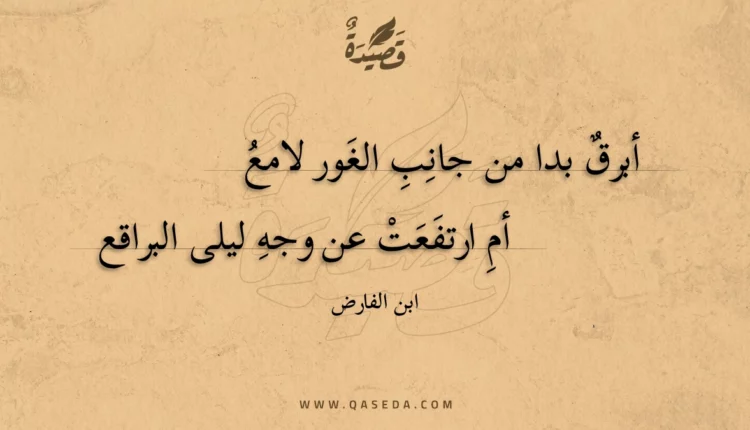 قَصِيْدَةٌ
أبرقٌ بدا من جانِبِ الغَور لامعُ
أمِ ارتفَعَتْ عن وجهِ ليلى البراقع
ابن الفارض
WWW.QASEDA.COM